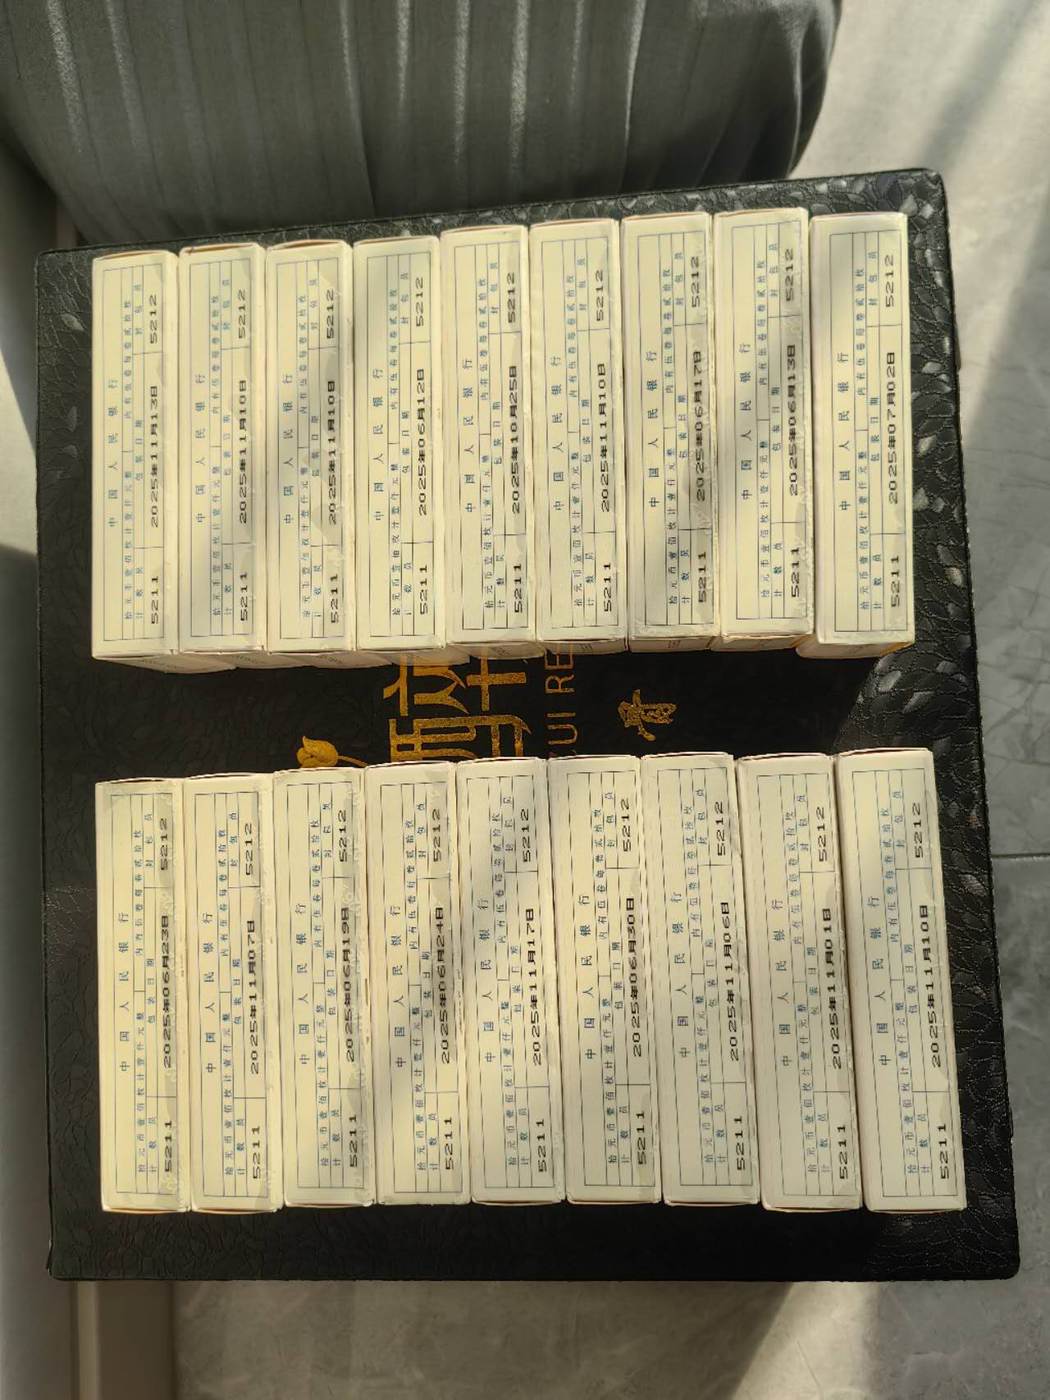 中国人民银行
拾元币壹佰枚计壹仟元整 内有伍卷每卷贰拾枚
计数员 包装日期 封包员
5211 2025年11月13日 5212
中国人民银行
拾元币壹佰枚计壹仟元整 内有伍卷每卷贰拾枚
计数员 包装日期 封包员
5211 2025年11月10日 5212
中国人民银行
拾元币壹佰枚计壹仟元整 内有伍卷每卷贰拾枚
计数员 包装日期 封包员
5211 2025年11月10日 5212
中国人民银行
拾元币壹佰枚计壹仟元整 内有伍卷每卷贰拾枚
计数员 包装日期 封包员
5211 2025年06月12日 5212
中国人民银行
拾元币壹佰枚计壹仟元整 内有伍卷每卷贰拾枚
计数员 包装日期 封包员
5211 2025年10月25日 5212
中国人民银行
拾元币壹佰枚计壹仟元整 内有伍卷每卷贰拾枚
计数员 包装日期 封包员
5211 2025年11月10日 5212
中国人民银行
拾元币壹佰枚计壹仟元整 内有伍卷每卷贰拾枚
计数员 包装日期 封包员
5211 2025年06月17日 5212
中国人民银行
拾元币壹佰枚计壹仟元整 内有伍卷每卷贰拾枚
计数员 包装日期 封包员
5211 2025年06月13日 5212
中国人民银行
拾元币壹佰枚计壹仟元整 内有伍卷每卷贰拾枚
计数员 包装日期 封包员
5211 2025年07月02日 5212
UI RE
中国人民银行
拾元币壹佰枚计壹仟元整 内有伍卷每卷贰拾枚
计数员 包装日期 封包员
5211 2025年06月23日 5212
中国人民银行
拾元币壹佰枚计壹仟元整 内有伍卷每卷贰拾枚
计数员 包装日期 封包员
5211 2025年11月07日 5212
中国人民银行
拾元币壹佰枚计壹仟元整 内有伍卷每卷贰拾枚
计数员 包装日期 封包员
5211 2025年06月19日 5212
中国人民银行
拾元币壹佰枚计壹仟元整 内有伍卷每卷贰拾枚
计数员 包装日期 封包员
5211 2025年06月24日 5212
中国人民银行
拾元币壹佰枚计壹仟元整 内有伍卷每卷贰拾枚
计数员 包装日期 封包员
5211 2025年11月17日 5212
中国人民银行
拾元币壹佰枚计壹仟元整 内有伍卷每卷贰拾枚
计数员 包装日期 封包员
5211 2025年06月30日 5212
中国人民银行
拾元币壹佰枚计壹仟元整 内有伍卷每卷贰拾枚
计数员 包装日期 封包员
5211 2025年11月06日 5212
中国人民银行
拾元币壹佰枚计壹仟元整 内有伍卷每卷贰拾枚
计数员 包装日期 封包员
5211 2025年11月01日 5212
中国人民银行
拾元币壹佰枚计壹仟元整 内有伍卷每卷贰拾枚
计数员 包装日期 封包员
5211 2025年11月10日 5212